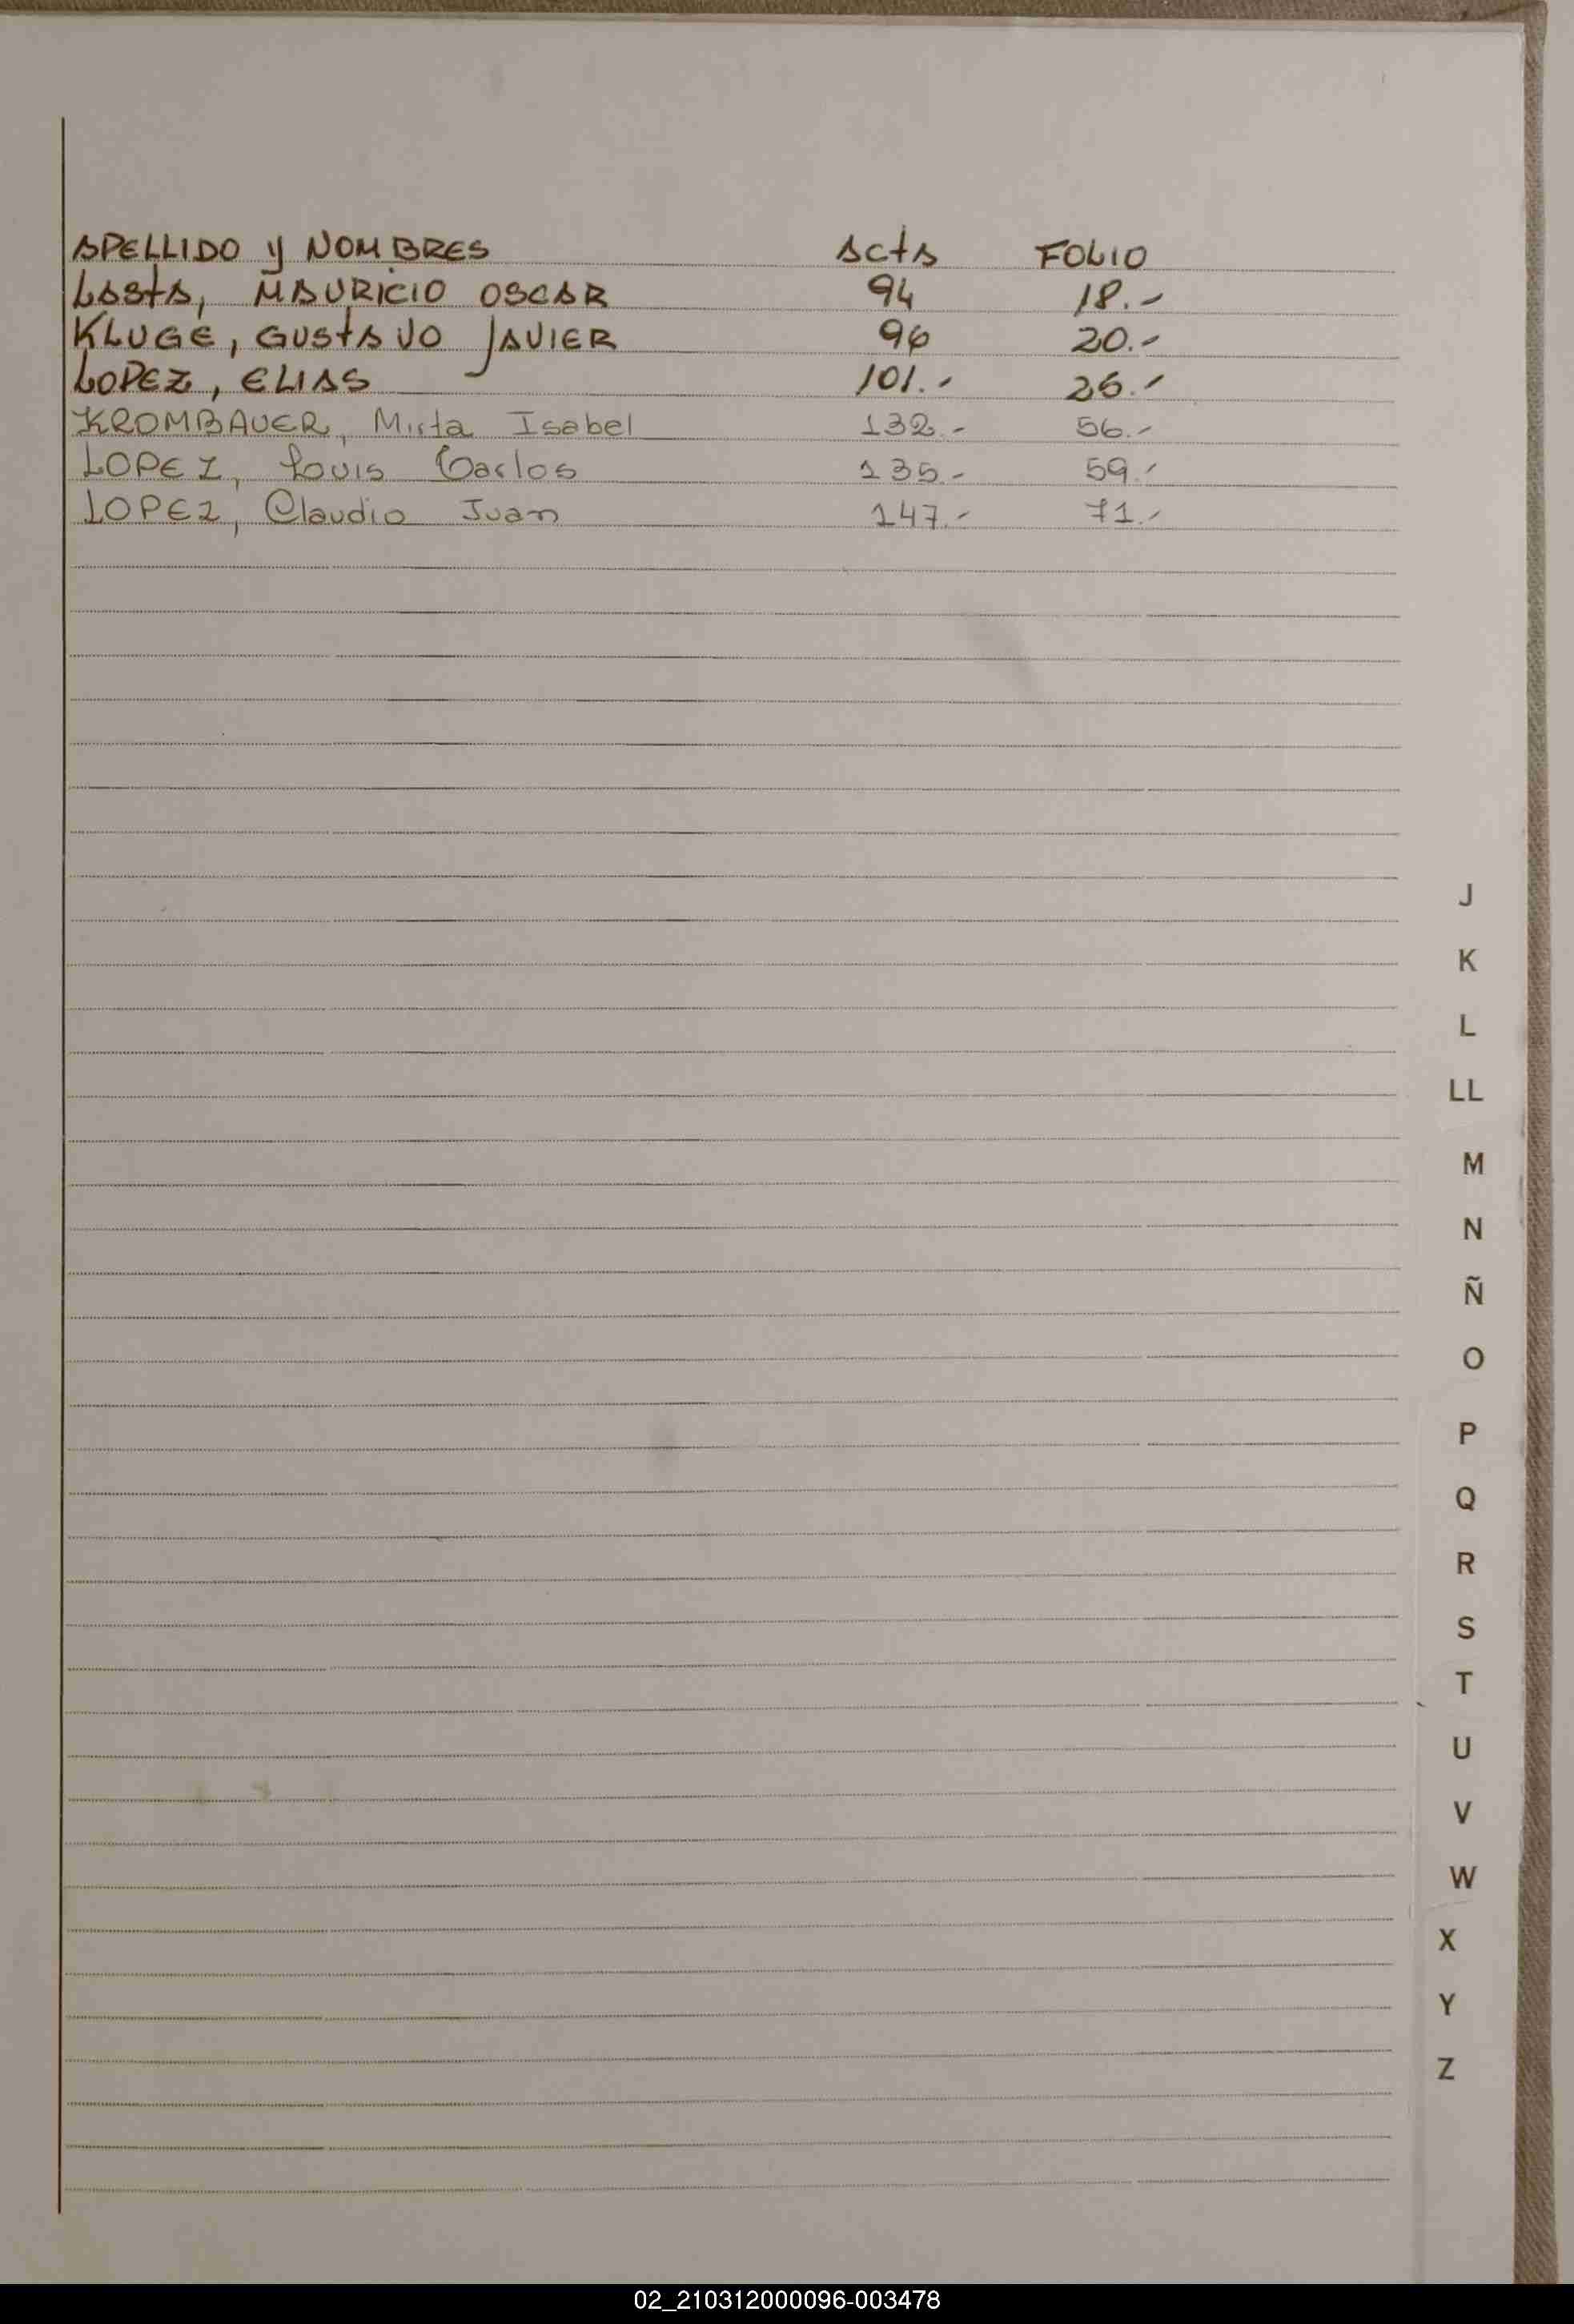 APELLIDO y NOMBRES ACtA FOLIO
LASTA, MAURICIO OSCAR 94 18.-
KLUGE, GUSTAVO JAVIER 96 20.-
LOPEZ, ELIAS 101.- 25.-
KROMBAUER, Mirta Isabel 132.- 56.-
LOPEZ, Louis Carlos 135.- 59.-
LOPEZ, Claudio Juan 147.- 71.-
J
K
L
LL
M
N
Ñ
O
P
Q
R
S
T
U
V
W
X
Y
Z
02_210312000096-003478